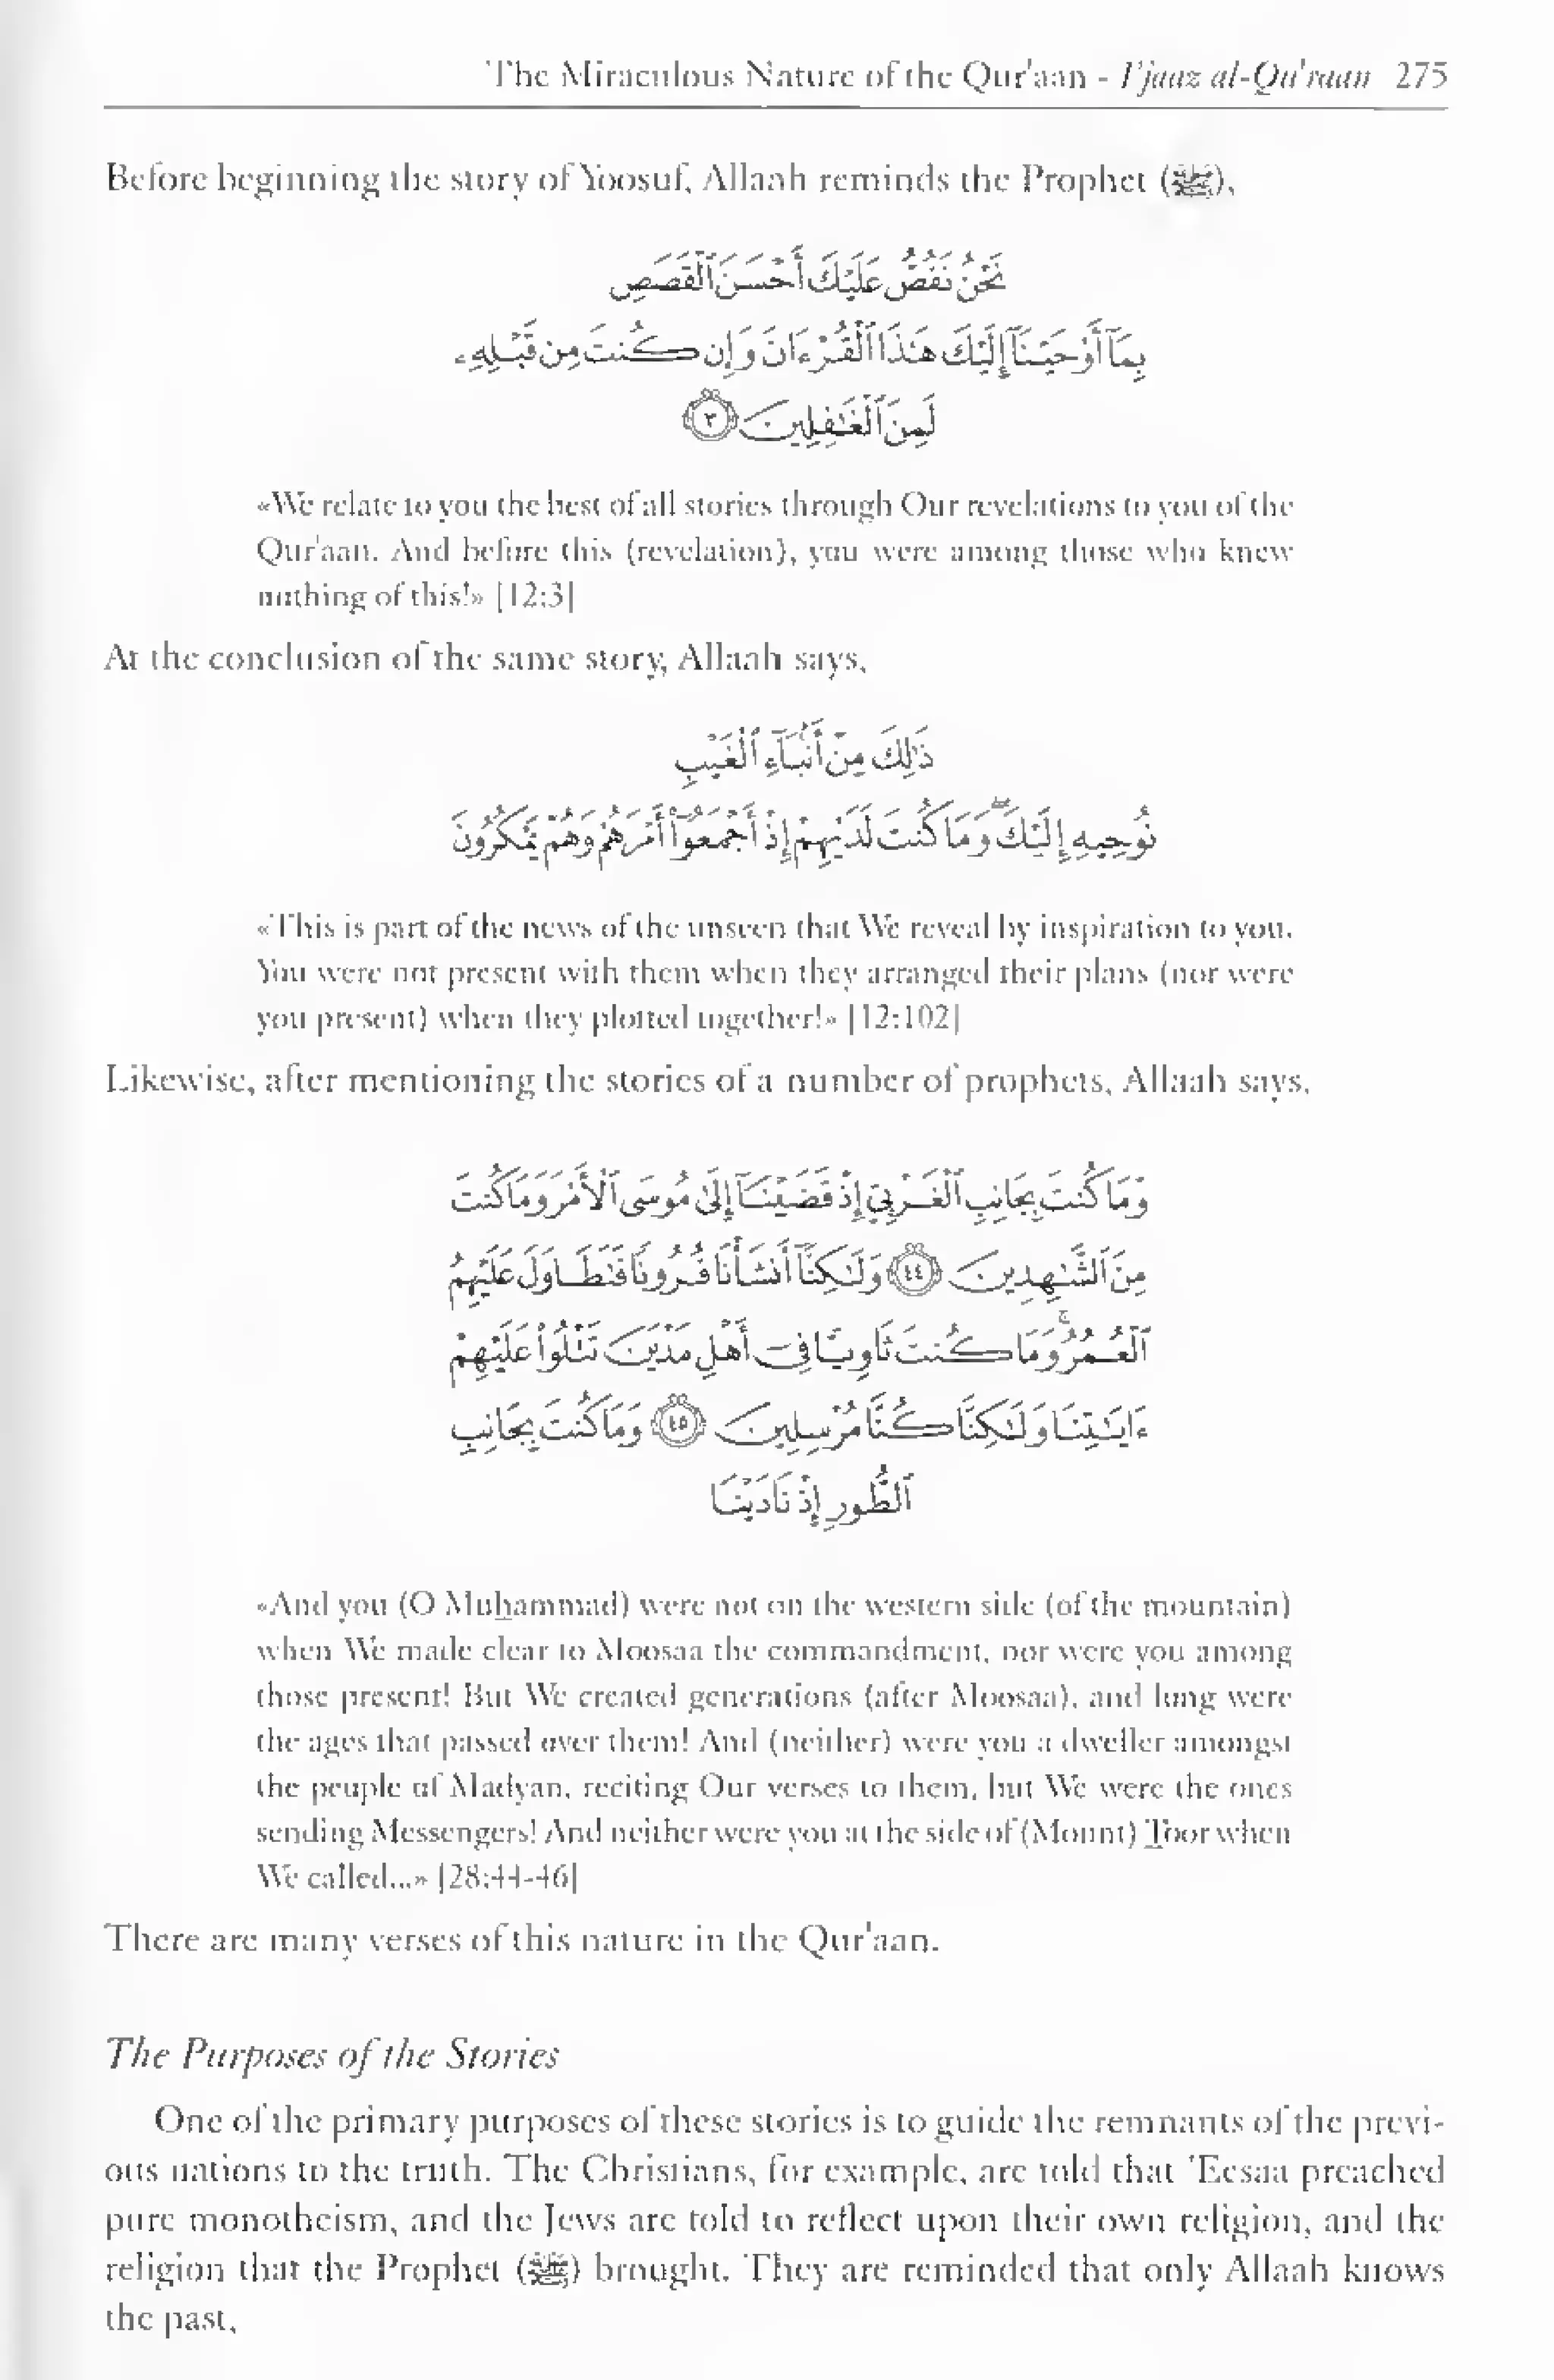 The Miraculous Nature of the Qur'aan - I'jaaz al-Qu'raan 275
Before beginning the story of Yoosuf, Allaah reminds the Prophet (ﷺ),
نَحْنُ نَقُصُّ عَلَيْكَ أَحْسَنَ ٱلْقَصَصِ
بِمَآ أَوْحَيْنَآ إِلَيْكَ هَـٰذَا ٱلْقُرْءَانَ وَإِن كُنتَ مِن قَبْلِهِۦ
لَمِنَ ٱلْغَـٰفِلِينَ ٣
«We relate to you the best of all stories through Our revelations to you of the
Qur'aan. And before this (revelation), you were among those who knew
nothing of this!» [12:3]
At the conclusion of the same story, Allaah says,
ذَٰلِكَ مِنْ أَنۢبَآءِ ٱلْغَيْبِ
نُوحِيهِ إِلَيْكَ ۖ وَمَا كُنتَ لَدَيْهِمْ إِذْ أَجْمَعُوٓا۟ أَمْرَهُمْ وَهُمْ يَمْكُرُونَ
«This is part of the news of the unseen that We reveal by inspiration to you.
You were not present with them when they arranged their plans (nor were
you present) when they plotted together!» [12:102]
Likewise, after mentioning the stories of a number of prophets, Allaah says,
وَمَا كُنتَ بِجَانِبِ ٱلْغَرْبِىِّ إِذْ قَضَيْنَآ إِلَىٰ مُوسَى ٱلْأَمْرَ وَمَا كُنتَ
مِنَ ٱلشَّـٰهِدِينَ ٤٤ وَلَـٰكِنَّآ أَنشَأْنَا قُرُونًا فَتَطَاوَلَ عَلَيْهِمُ
ٱلْعُمُرُ ۚ وَمَا كُنتَ ثَاوِيًا فِىٓ أَهْلِ مَدْيَنَ تَتْلُوا۟ عَلَيْهِمْ
ءَايَـٰتِنَا وَلَـٰكِنَّا كُنَّا مُرْسِلِينَ ٤٥ وَمَا كُنتَ بِجَانِبِ
ٱلطُّورِ إِذْ نَادَيْنَا
«And you (O Muḥammad) were not on the western side (of the mountain)
when We made clear to Moosaa the commandment, nor were you among
those present! But We created generations (after Moosaa), and long were
the ages that passed over them! And (neither) were you a dweller amongst
the people of Madyan, reciting Our verses to them, but We were the ones
sending Messengers! And neither were you at the side of (Mount) Ṭoor when
We called...» [28:44-46]
There are many verses of this nature in the Qur'aan.
The Purposes of the Stories
One of the primary purposes of these stories is to guide the remnants of the previ-
ous nations to the truth. The Christians, for example, are told that 'Eesaa preached
pure monotheism, and the Jews are told to reflect upon their own religion, and the
religion that the Prophet (ﷺ) brought. They are reminded that only Allaah knows
the past,